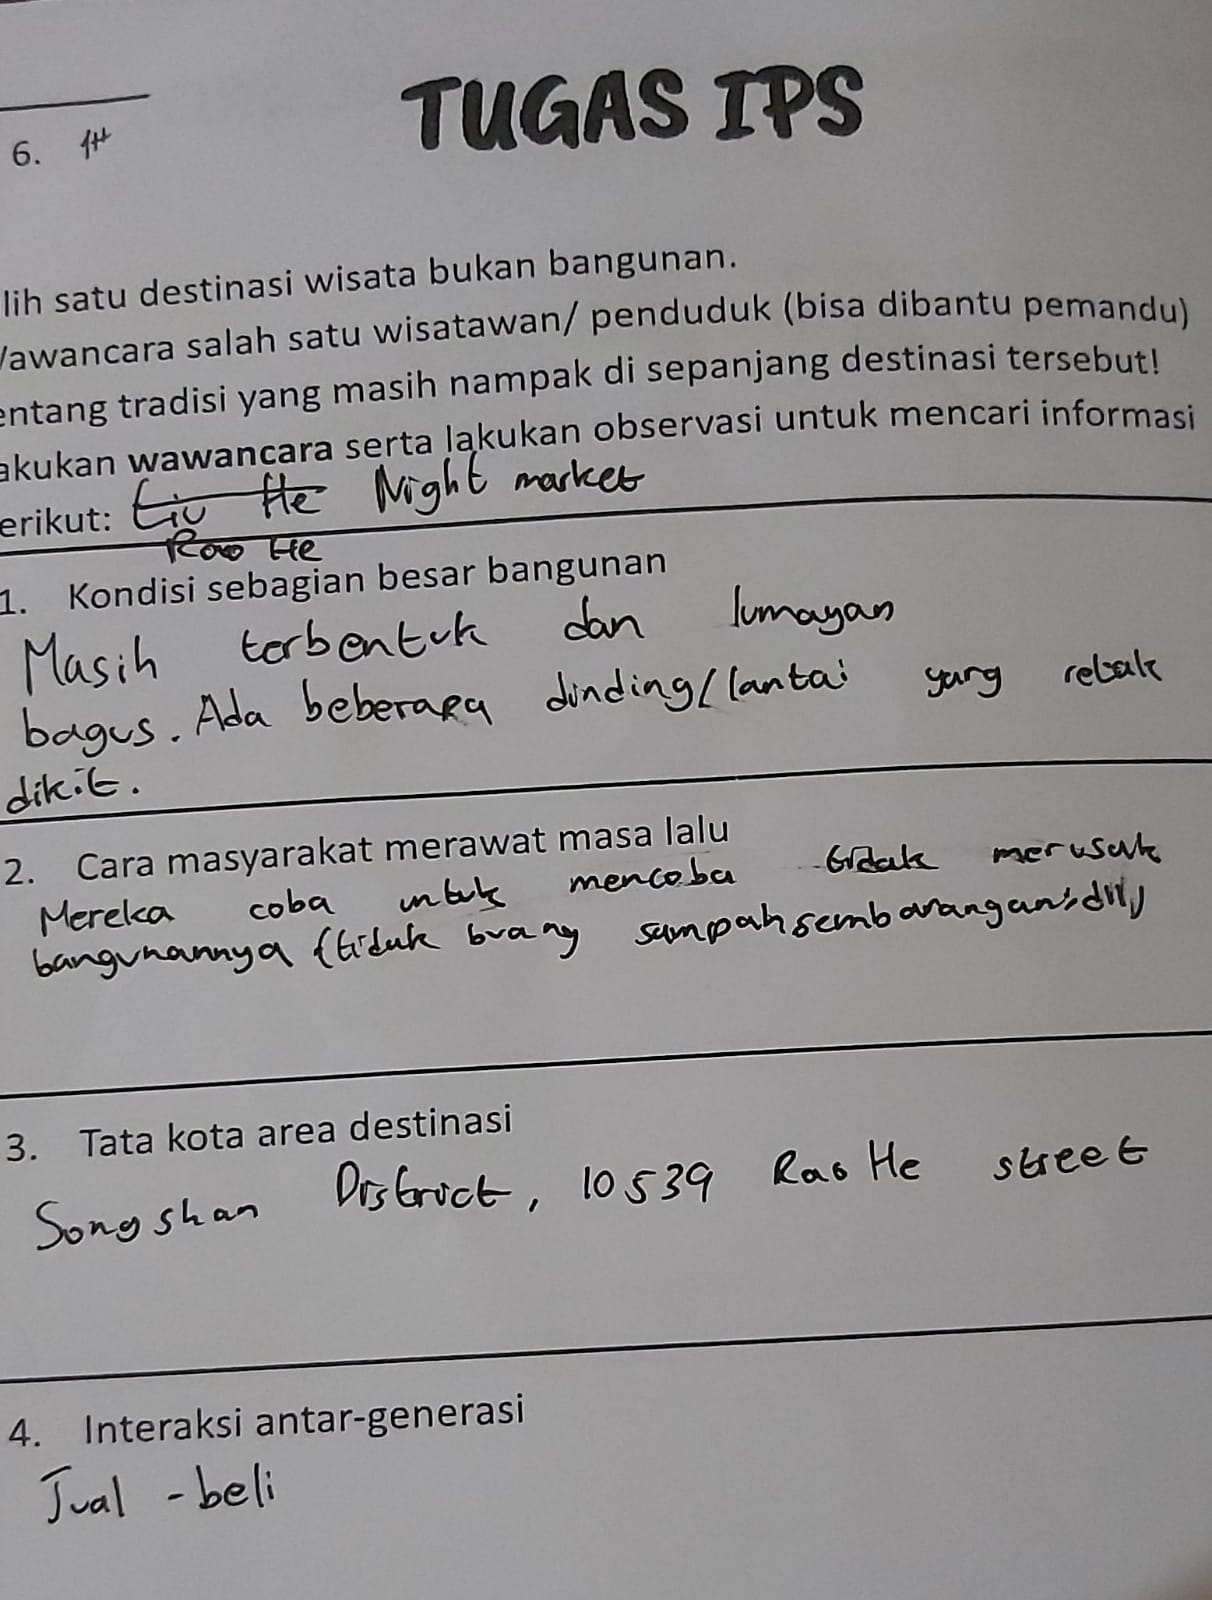 TUGAS IPS
6.
lih satu destinasi wisata bukan bangunan.
awancara salah satu wisatawan/ penduduk (bisa dibantu pemandu)
entang tradisi yang masih nampak di sepanjang destinasi tersebut!
akukan wawancara serta lakukan observasi untuk mencari informasi
erikut: Liu He Night market
Rao He
1. Kondisi sebagian besar bangunan
Masih terbentuk dan lumayan
bagus. Ada beberapa dinding/lantai yang rebak
dikit.
2. Cara masyarakat merawat masa lalu
Mereka coba untuk mencoba tidak merusak
bangunannya (tiduk buang sampah sembarangan, dll)
3. Tata kota area destinasi
Songshan District, 10539 Rao He street
4. Interaksi antar-generasi
Jual - beli